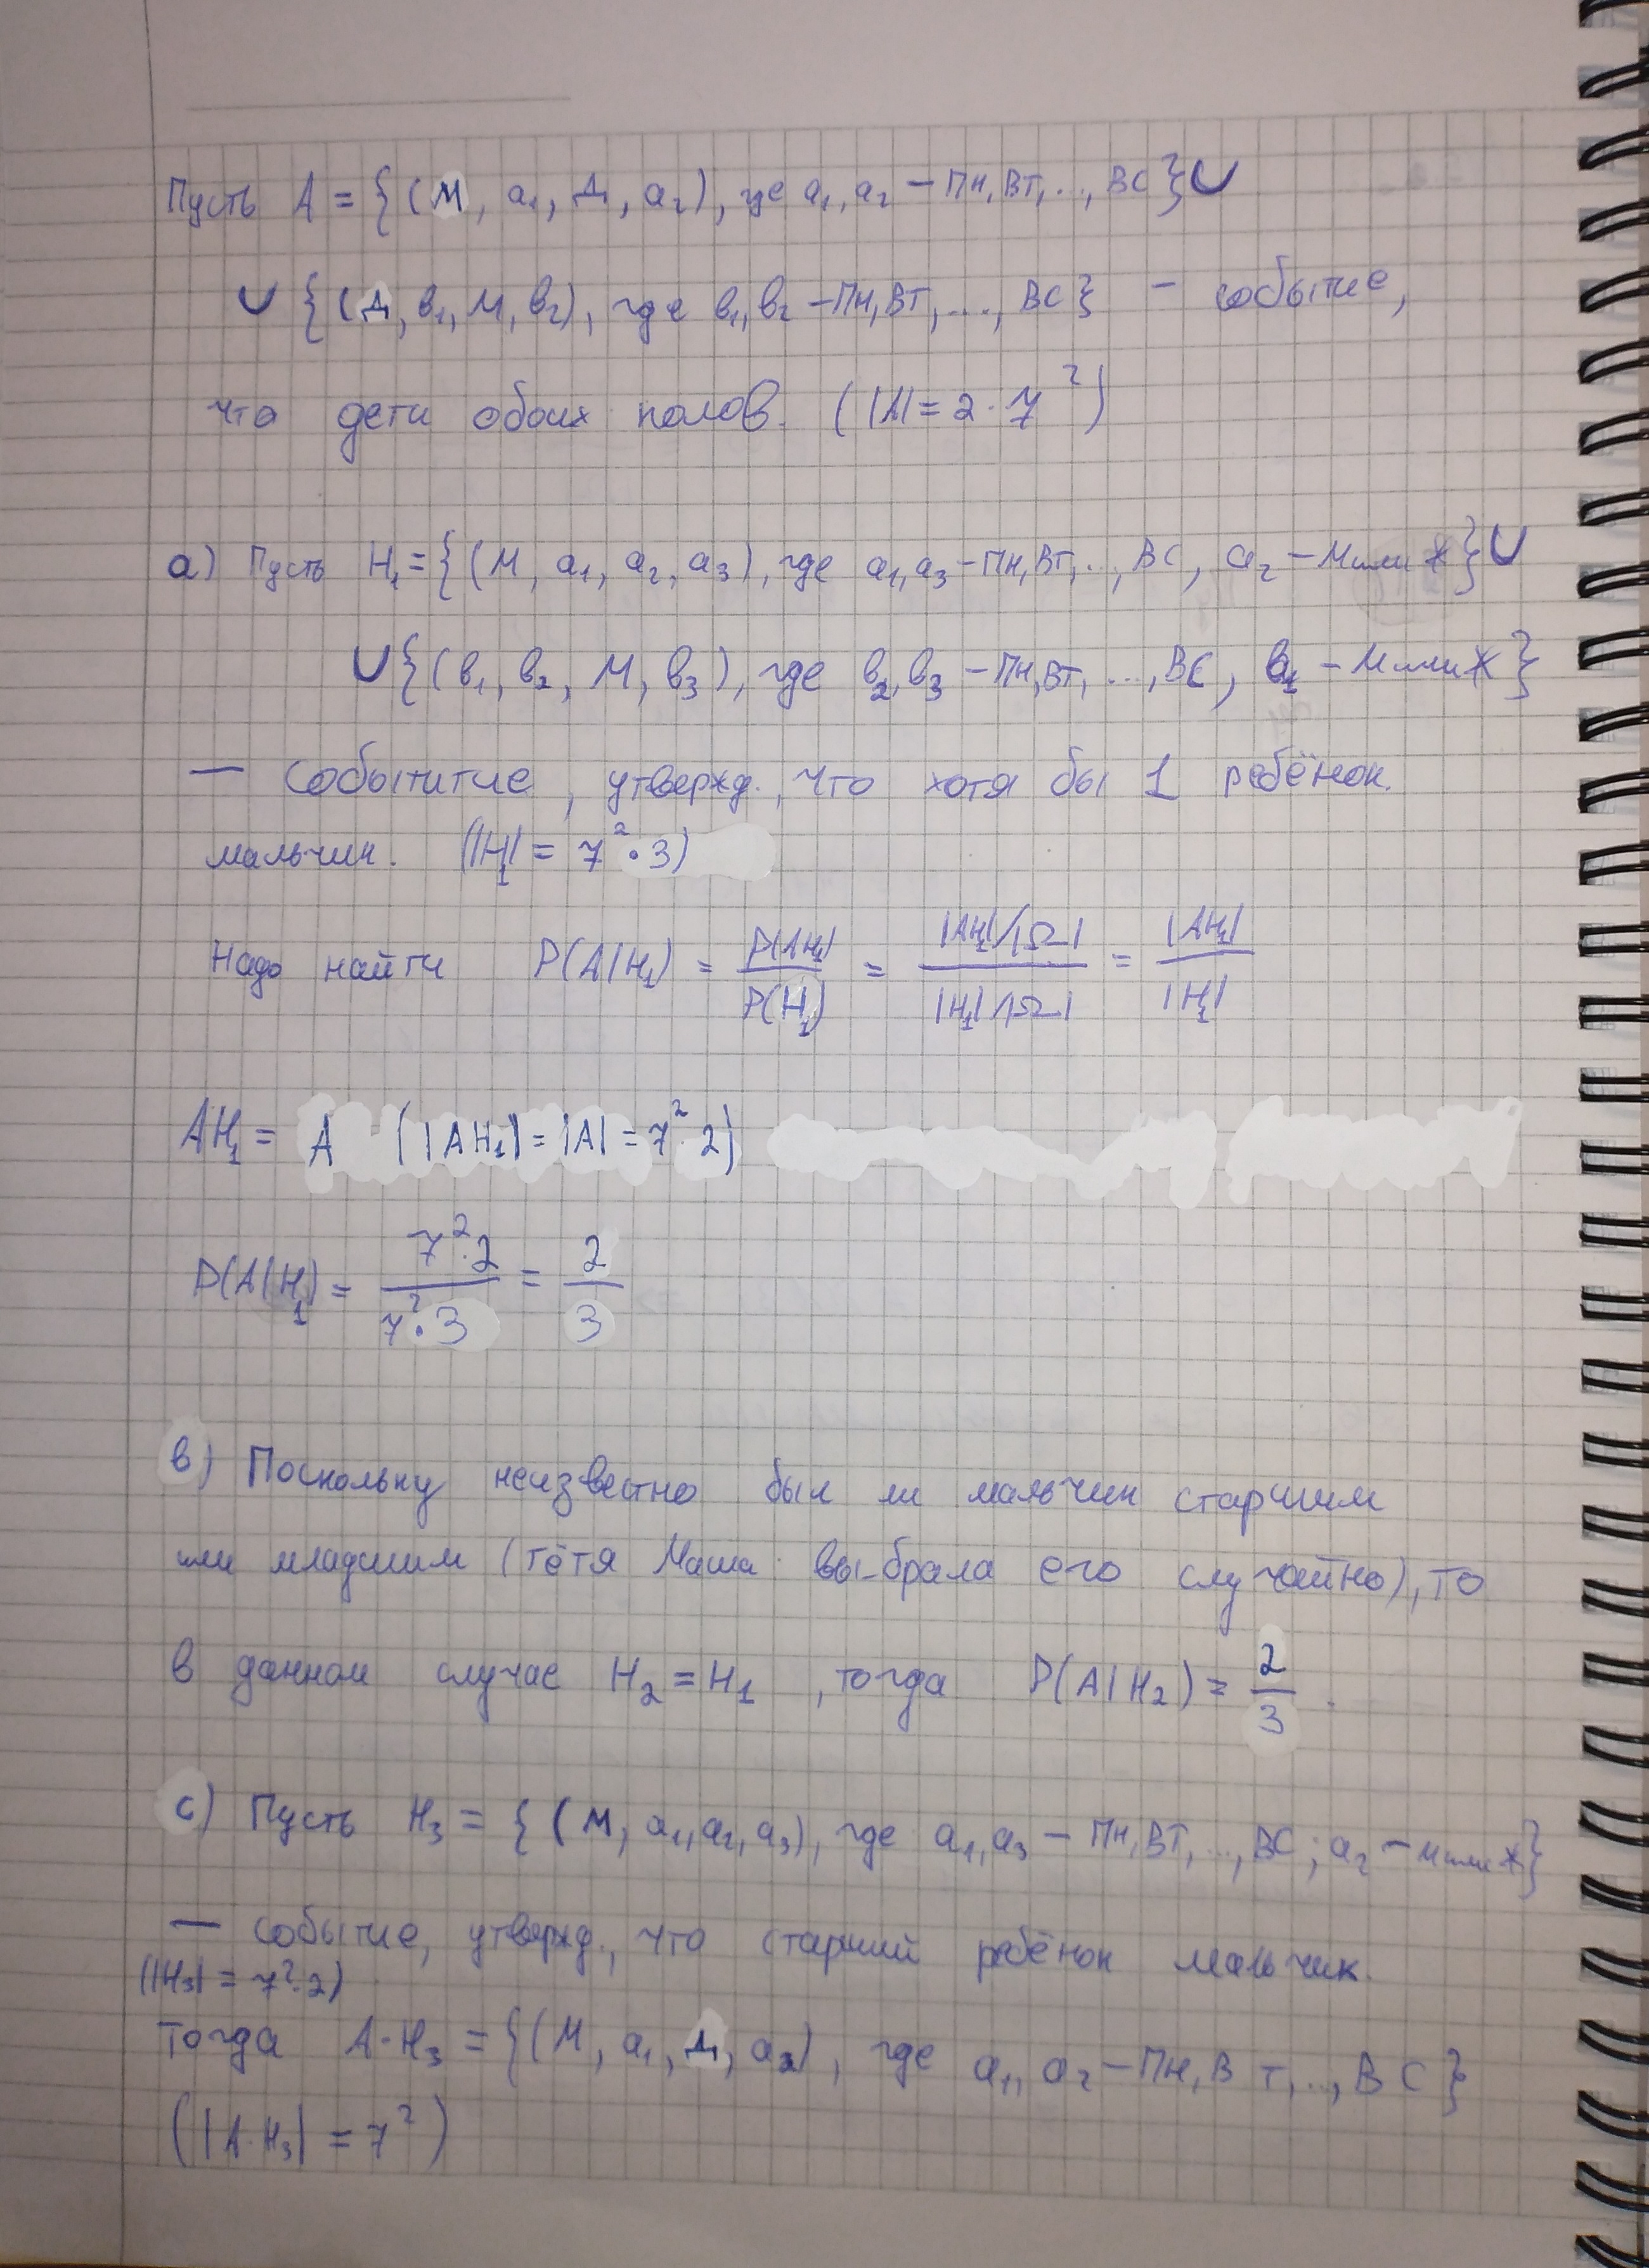 Пусть A = {(М, a₁, Д, a₂), где a₁, a₂ – Пн, Вт, .., ВС} ∪
∪ {(Д, в₁, М, в₂), где в₁, в₂ – Пн, Вт, ...., ВС} – событие,
что дети обоих полов. (|A| = 2 · 7²)
a) Пусть H₁ = {(М, a₁, a₂, a₃), где a₁, a₃ – Пн, Вт, .., ВС, a₂ – М или Ж} ∪
∪ {(в₁, в₂, М, в₃), где в₂, в₃ – Пн, Вт, ..., ВС, в₁ – М или Ж}
— Событитие, утвержд., что хотя бы 1 ребёнок
мальчик. (|H₁| = 7² · 3)
Надо найти P(A|H₁) = P(AH₁)/P(H₁) = (|AH₁|/|Ω|)/(|H₁|/|Ω|) = |AH₁|/|H₁|
AH₁ = A (|AH₁| = |A| = 7² · 2)
P(A|H₁) = (7² · 2)/(7² · 3) = 2/3
в) Поскольку неизвестно был ли мальчик старшим
или младшим (тётя Маша выбрала его случайно), то
в данном случае H₂ = H₁, тогда P(A|H₂) = 2/3.
c) Пусть H₃ = {(М, a₁, a₂, a₃), где a₁, a₃ – Пн, Вт, .., ВС; a₂ – М или Ж}
— событие, утвержд., что старший ребёнок мальчик.
(|H₃| = 7² · 2)
Тогда A · H₃ = {(М, a₁, Д, a₂), где a₁, a₂ – Пн, Вт, .., ВС}
(|A · H₃| = 7²)